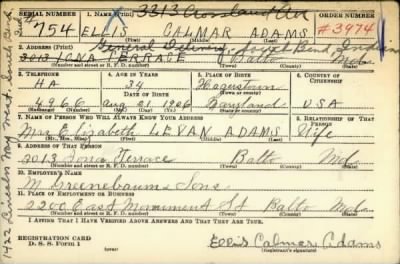 SERIAL NUMBER 1. NAME (Print) 3313
754 ELLIS CALMAR ADAMS #3974
(First) (Middle) (Last)
General Delivery, Bend,
2. ADDRESS (Print)
3013 IONA TERRACE Balto Md.
(Number and street or R. F. D. number) (Town) (County) (State)
3. TELEPHONE 4. AGE IN YEARS 5. PLACE OF BIRTH 6. COUNTRY OF CITIZENSHIP
HA 34 Hagerstown
DATE OF BIRTH (Town or county)
4966 Aug 21 1906 Maryland USA
(Mo.) (Day) (Yr.) (State or country)
7. NAME OF PERSON WHO WILL ALWAYS KNOW YOUR ADDRESS 8. RELATIONSHIP OF THAT PERSON
Mrs Elizabeth LEVAN ADAMS Wife
(Mr., Mrs., Miss) (First) (Middle) (Last)
9. ADDRESS OF THAT PERSON
3013 Iona Terrace Balto Md.
(Number and street or R. F. D. number) (Town) (County) (State)
10. EMPLOYER'S NAME
M Greenebaum & Sons
11. PLACE OF EMPLOYMENT OR BUSINESS
2200 East Monument St Balto Md.
(Number and street or R. F. D. number) (Town) (County) (State)
I AFFIRM THAT I HAVE VERIFIED ABOVE ANSWERS AND THAT THEY ARE TRUE.
REGISTRATION CARD
D. S. S. Form 1 Ellis Calmar Adams
(Registrant's signature)
1422 Way West, South Bend